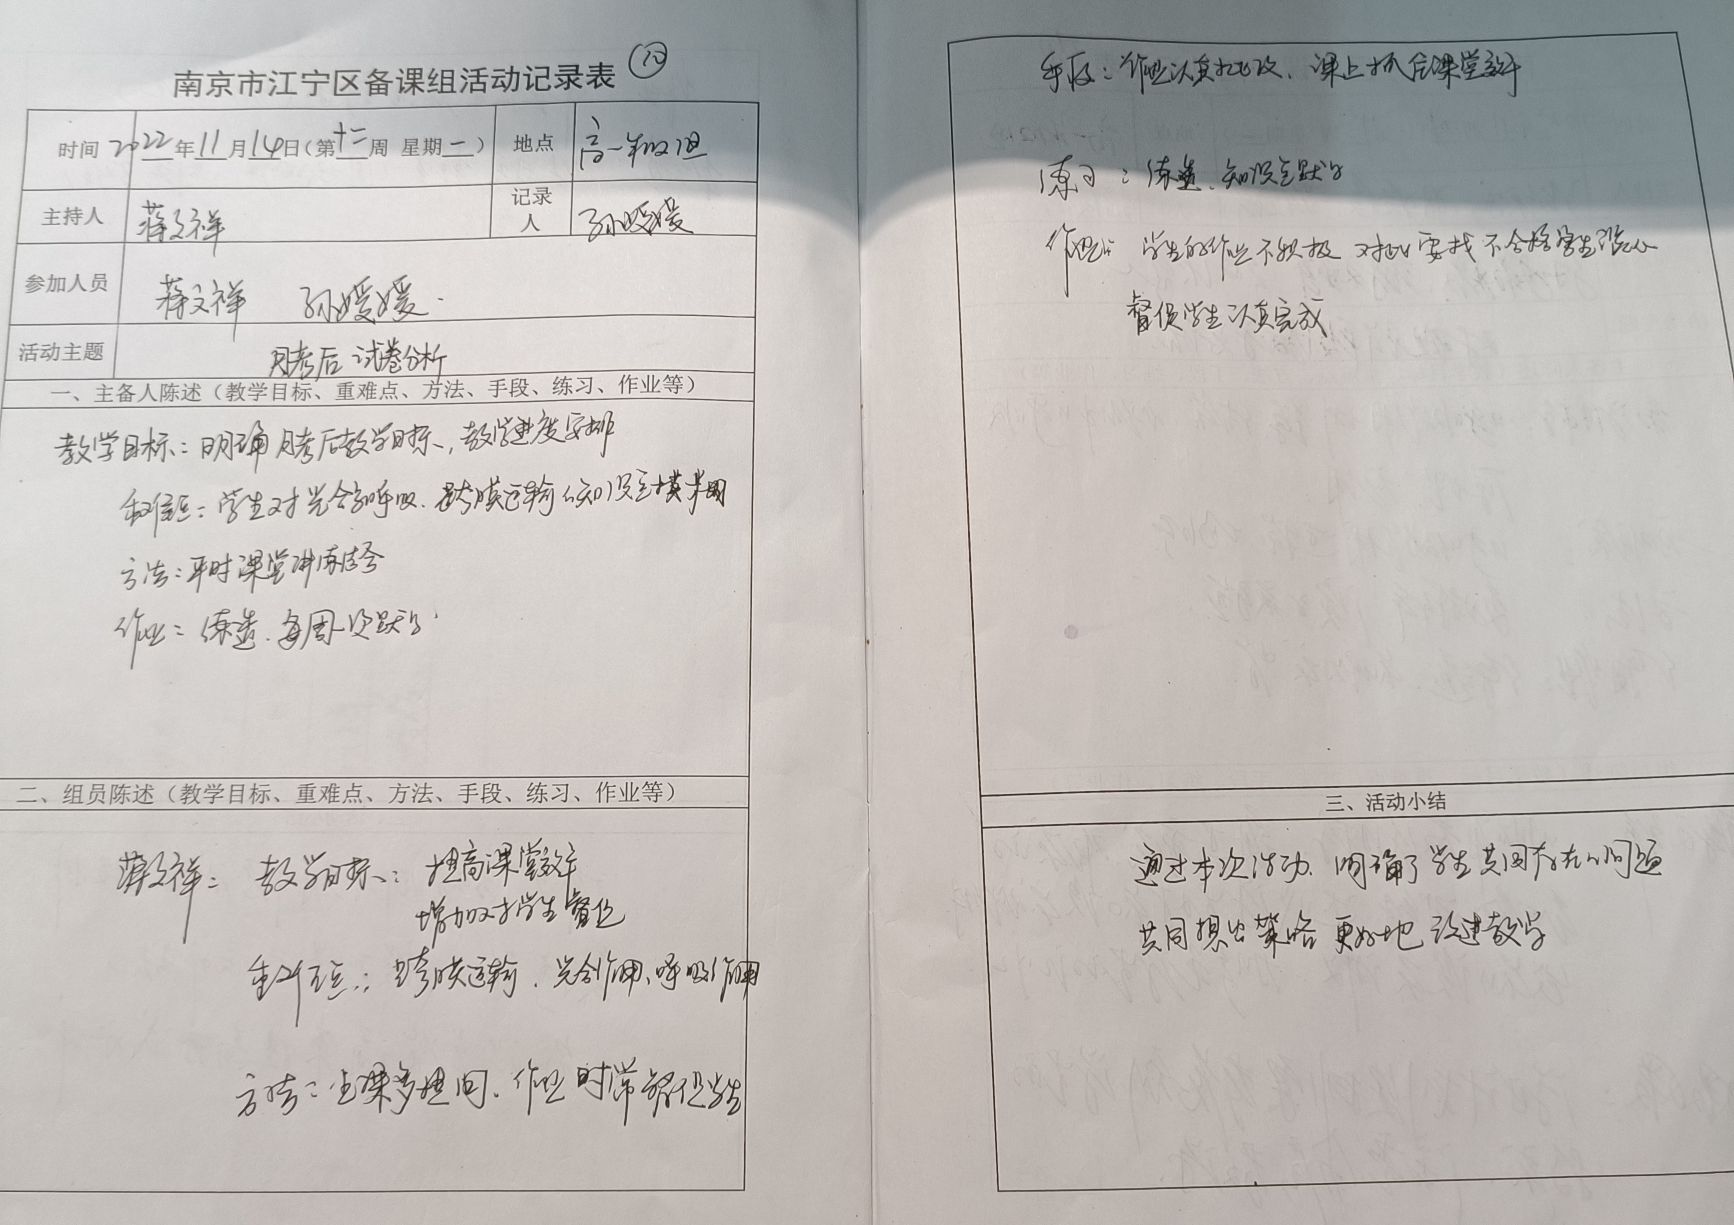 南京市江宁区备课组活动记录表 ⑫
时间 2022年11月14日(第十二周 星期一) 地点 高一年级组
主持人 蒋文祥 记录人 孙媛媛
参加人员 蒋文祥 孙媛媛.
活动主题 月考后试卷分析
一、主备人陈述（教学目标、重难点、方法、手段、练习、作业等）
教学目标：明确月考后教学目标，教学进度安排
重难点：学生对光合呼吸、跨膜运输知识
方法：平时课堂讲练结合
作业：练透、每周一次
二、组员陈述（教学目标、重难点、方法、手段、练习、作业等）
蒋文祥： 教学目标： 提高课堂效率
增加对学生督促
重难点：跨膜运输、光合作用、呼吸作用
方法：上课多提问、作业时常督促学生
手段：作业认真批改、课上抓后课堂效率
练习：练透、知识点默写
作业：学生的作业不积极 对此要找不合格学生谈心
督促学生认真完成
三、活动小结
通过本次活动，明确了学生共同存在的问题
共同想出策略 更好地改进教学